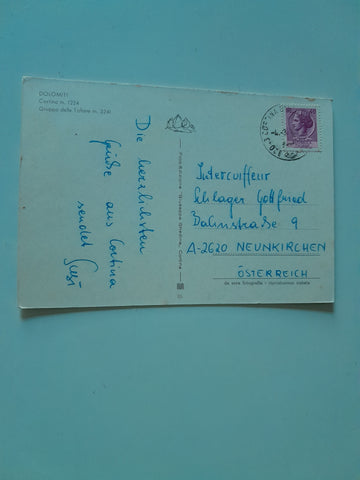 DOLOMITI
Cortina m. 1224
Gruppo delle Tofane m. 3241
Die herzlichsten
Grüße aus Cortina
sendet Susi
Foto Edizione Giuseppe Ghedina, Cortina
Intercoiffeur
Schlager Gottfried
Bahnstraße 9
A-2620 NEUNKIRCHEN
ÖSTERREICH
da vera fotografia - riproduzione vietata